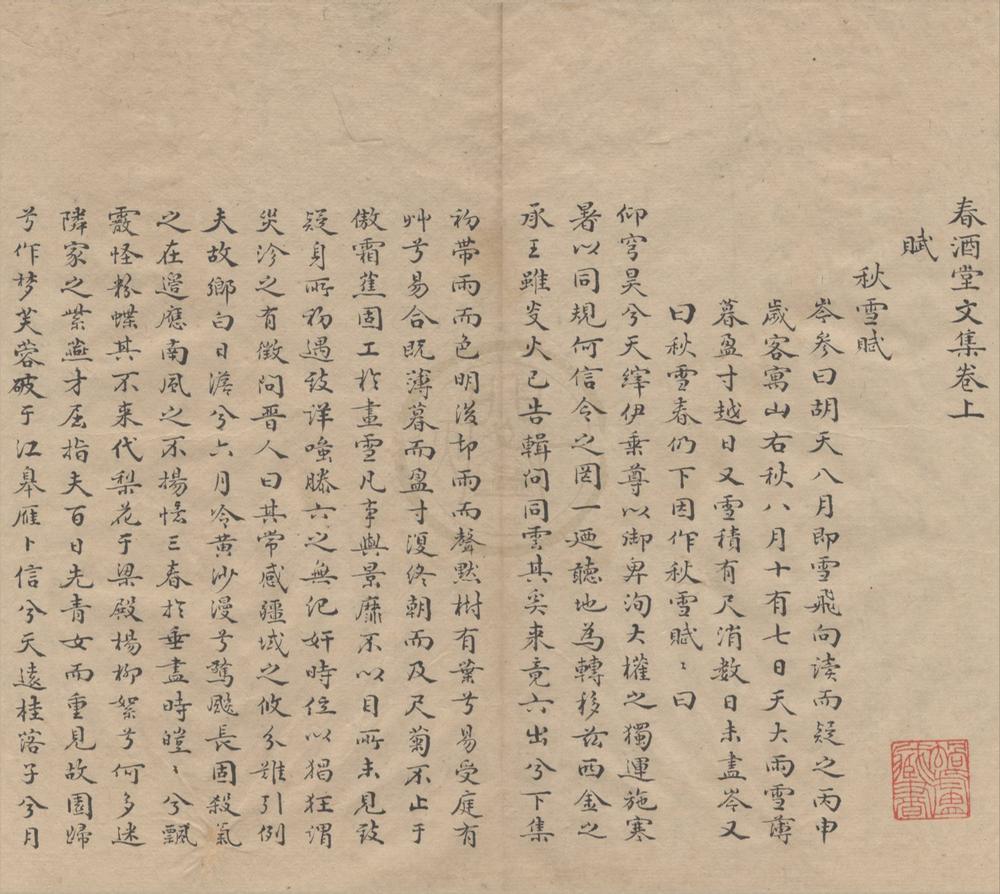 春酒堂文集卷上
賦
秋雪賦
岑參曰胡天八月即雪飛向讀而疑之丙申
歲客寓山右秋八月十有七日天大雨雪薄
暮盈寸越日又雪積有尺消數日未盡岑又
曰秋雪春仍下因作秋雪賦〻曰
仰穹昊兮天緯伊乗尊以御卑洵大權之獨運施寒
暑以同規何信令之罔一廼聽地為轉移茲西金之
承王雖炎火已告輯问同雲其奚来竟六出兮下集
初帶雨而色明後却雨而聲默樹有葉兮易受庭有
艸兮易合既薄暮而盈寸復終朝而及尺菊不止于
傲霜蕉固工於畫雪凡事與景靡不以目所未見致
疑身所初遇致詳嗤滕六之無犯奸時位以猖狂謂
灾沴之有徵问晋人曰其常感疆域之攸分難引例
夫故鄉白日澹兮六月冷黄沙漫兮驚飈長固殺氣
之在邉應南風之不揚恡三春於垂盡時曀〻兮飄
霰怪粉蝶其不来代梨花于梁殿楊柳絮兮何多迷
隣家之紫燕才屈指夫百日先青女而重見故園歸
兮作梦芙蓉破于江皋雁卜信兮天遠桂落子兮月